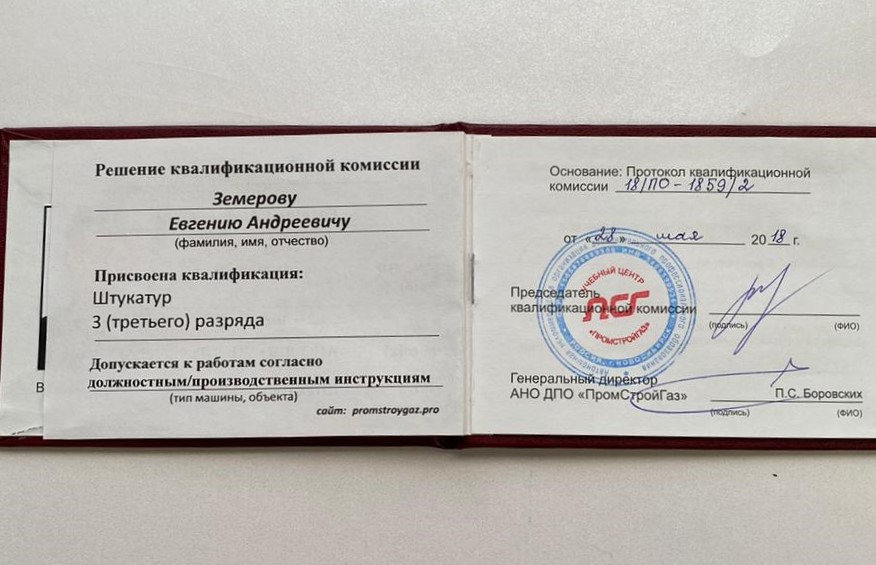 Решение квалификационной комиссии
Земерову
Евгению Андреевичу
(фамилия, имя, отчество)
Присвоена квалификация:
Штукатур
3 (третьего) разряда
Допускается к работам согласно
должностным/производственным инструкциям
(тип машины, объекта)
сайт: promstroygaz.pro
В
Основание: Протокол квалификационной
комиссии 18/ПО - 1859/2
от «28» мая 2018 г.
УЧЕБНЫЙ ЦЕНТР
ПСГ
«ПРОМСТРОЙГАЗ»
Председатель
квалификационной комиссии
(подпись) (ФИО)
Генеральный директор
АНО ДПО «ПромСтройГаз» П.С. Боровских
(подпись) (ФИО)